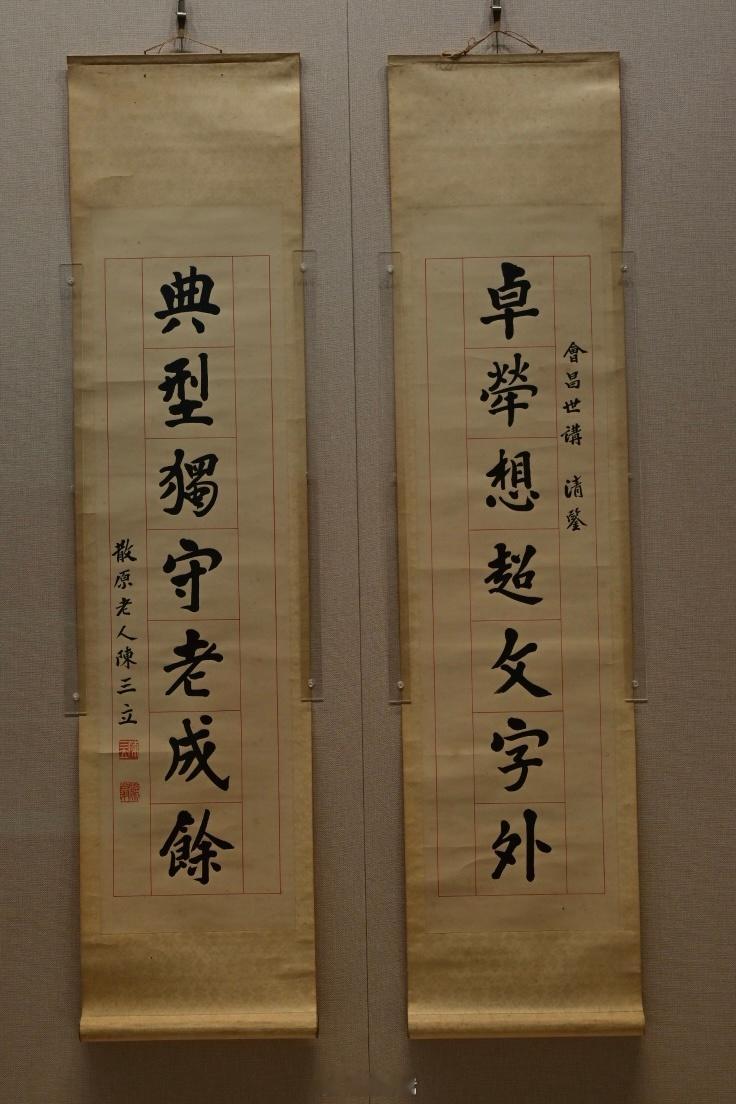 會昌世講 清鑒
卓犖想超文字外
典型獨守老成餘
散原老人陳三立